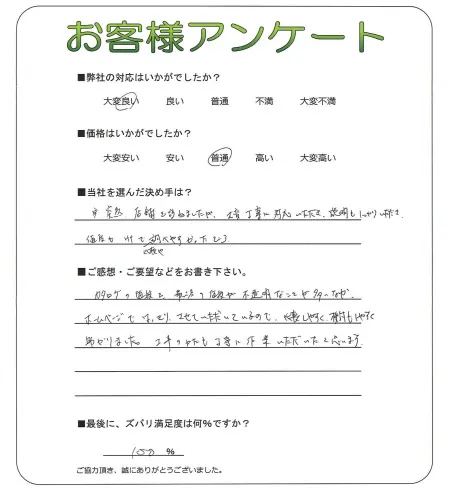 お客様アンケート
■弊社の対応はいかがでしたか？
大変良い 良い 普通 不満 大変不満
■価格はいかがでしたか？
大変安い 安い 普通 高い 大変高い
■当社を選んだ決め手は？
店舗を訪ねましたが、丁寧に対応いただき、説明もしっかりいただき、
価格も HPで
■ご感想・ご要望などをお書き下さい。
カタログの価格と、の価格が不透明なことが多いなか、
ホームページではっきりさせていただいているので、しやすく 検討もしやすく
助かりました。工事の方も丁寧に作業いただいたと思います。
■最後に、ズバリ満足度は何％ですか？
100 ％
ご協力頂き、誠にありがとうございました。